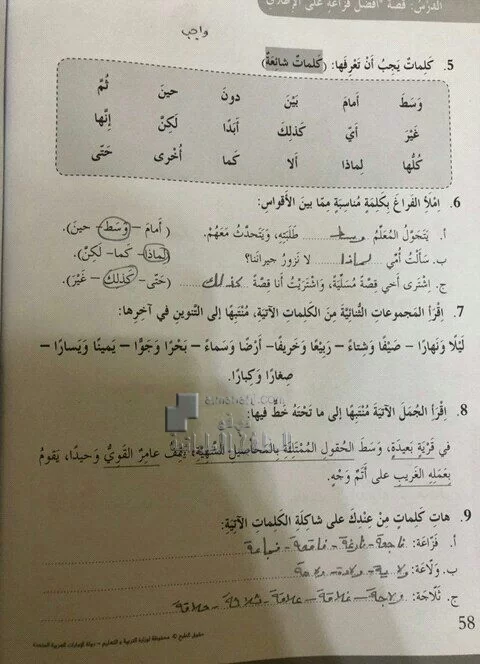 الدرس: قصة "أفضل فزاعة على الإطلاق"
واجب
5. كَلِماتٌ يَجِبُ أَنْ تَعْرِفَها: (كَلِماتٌ شائِعَةٌ)
وَسَطَ أَمامَ بَيْنَ دونَ حينَ ثُمَّ
غَيْرَ أَيّ كَذلِكَ أَبَدًا لَكِنْ إِنَّها
كُلُّها لِماذا أَلا كَما أُخْرى حَتّى
6. اِمْلَأِ الفَراغَ بِكَلِمَةٍ مُناسِبَةٍ مِمّا بَينَ الأَقواسِ:
أ. يَتَجَوَّلُ المُعَلِّمُ وسط طَلَبَتِهِ، وَيَتَحدَّثُ مَعَهُمْ. (أَمامَ – وَسَطَ – حينَ).
ب. سَأَلْتُ أُمّي لماذا لا نَزورُ جيرانَنا؟ (لِماذا – كَما – لَكِنْ).
ج. اِشْتَرى أَخي قِصَّةً مُسَلِّيَةً، وَاشْتَرَيْتُ أَنا قِصَّةً كذلك (حَتّى – كَذلِكَ – غَيْرَ).
7. اِقْرَأِ المَجموعاتِ الثُّنائِيَّةَ مِنَ الكَلِماتِ الآتِيَةِ، مُنْتَبِهًا إِلى التَّنوينِ في آخِرِها:
لَيْلًا وَنَهارًا – صَيْفًا وَشِتاءً – رَبيعًا وَخَريفًا – أَرْضًا وَسَماءً – بَحْرًا وَجَوًّا – يَمينًا وَيَسارًا –
صِغارًا وَكِبارًا.
8. اِقْرَأِ الجُمَلَ الآتِيَةَ مُنْتَبِهًا إِلى ما تَحْتَهُ خَطٌّ فيها:
في قَرْيَةٍ بَعيدَةٍ، وَسَطَ الحُقولِ المُمْتَلِئَةِ بِالمَحاصيلِ الشَّهِيَّةِ، يَقِفُ عامِرٌ القَوِيُّ وَحيدًا، يَقومُ
بِعَمَلِهِ الغَريبِ على أَتَمِّ وَجْهٍ.
9. هاتِ كَلِماتٍ مِنْ عِنْدِكَ على شاكِلَةِ الكَلِماتِ الآتِيَةِ:
أ. فَزّاعَة:
ب. وَلّاعَة:
ج. ثَلّاجَة: علاقة - ثلاثة - حلاقة
58
حقوق الطبع © محفوظة لوزارة التربية و التعليم – دولة الإمارات العربية المتحدة